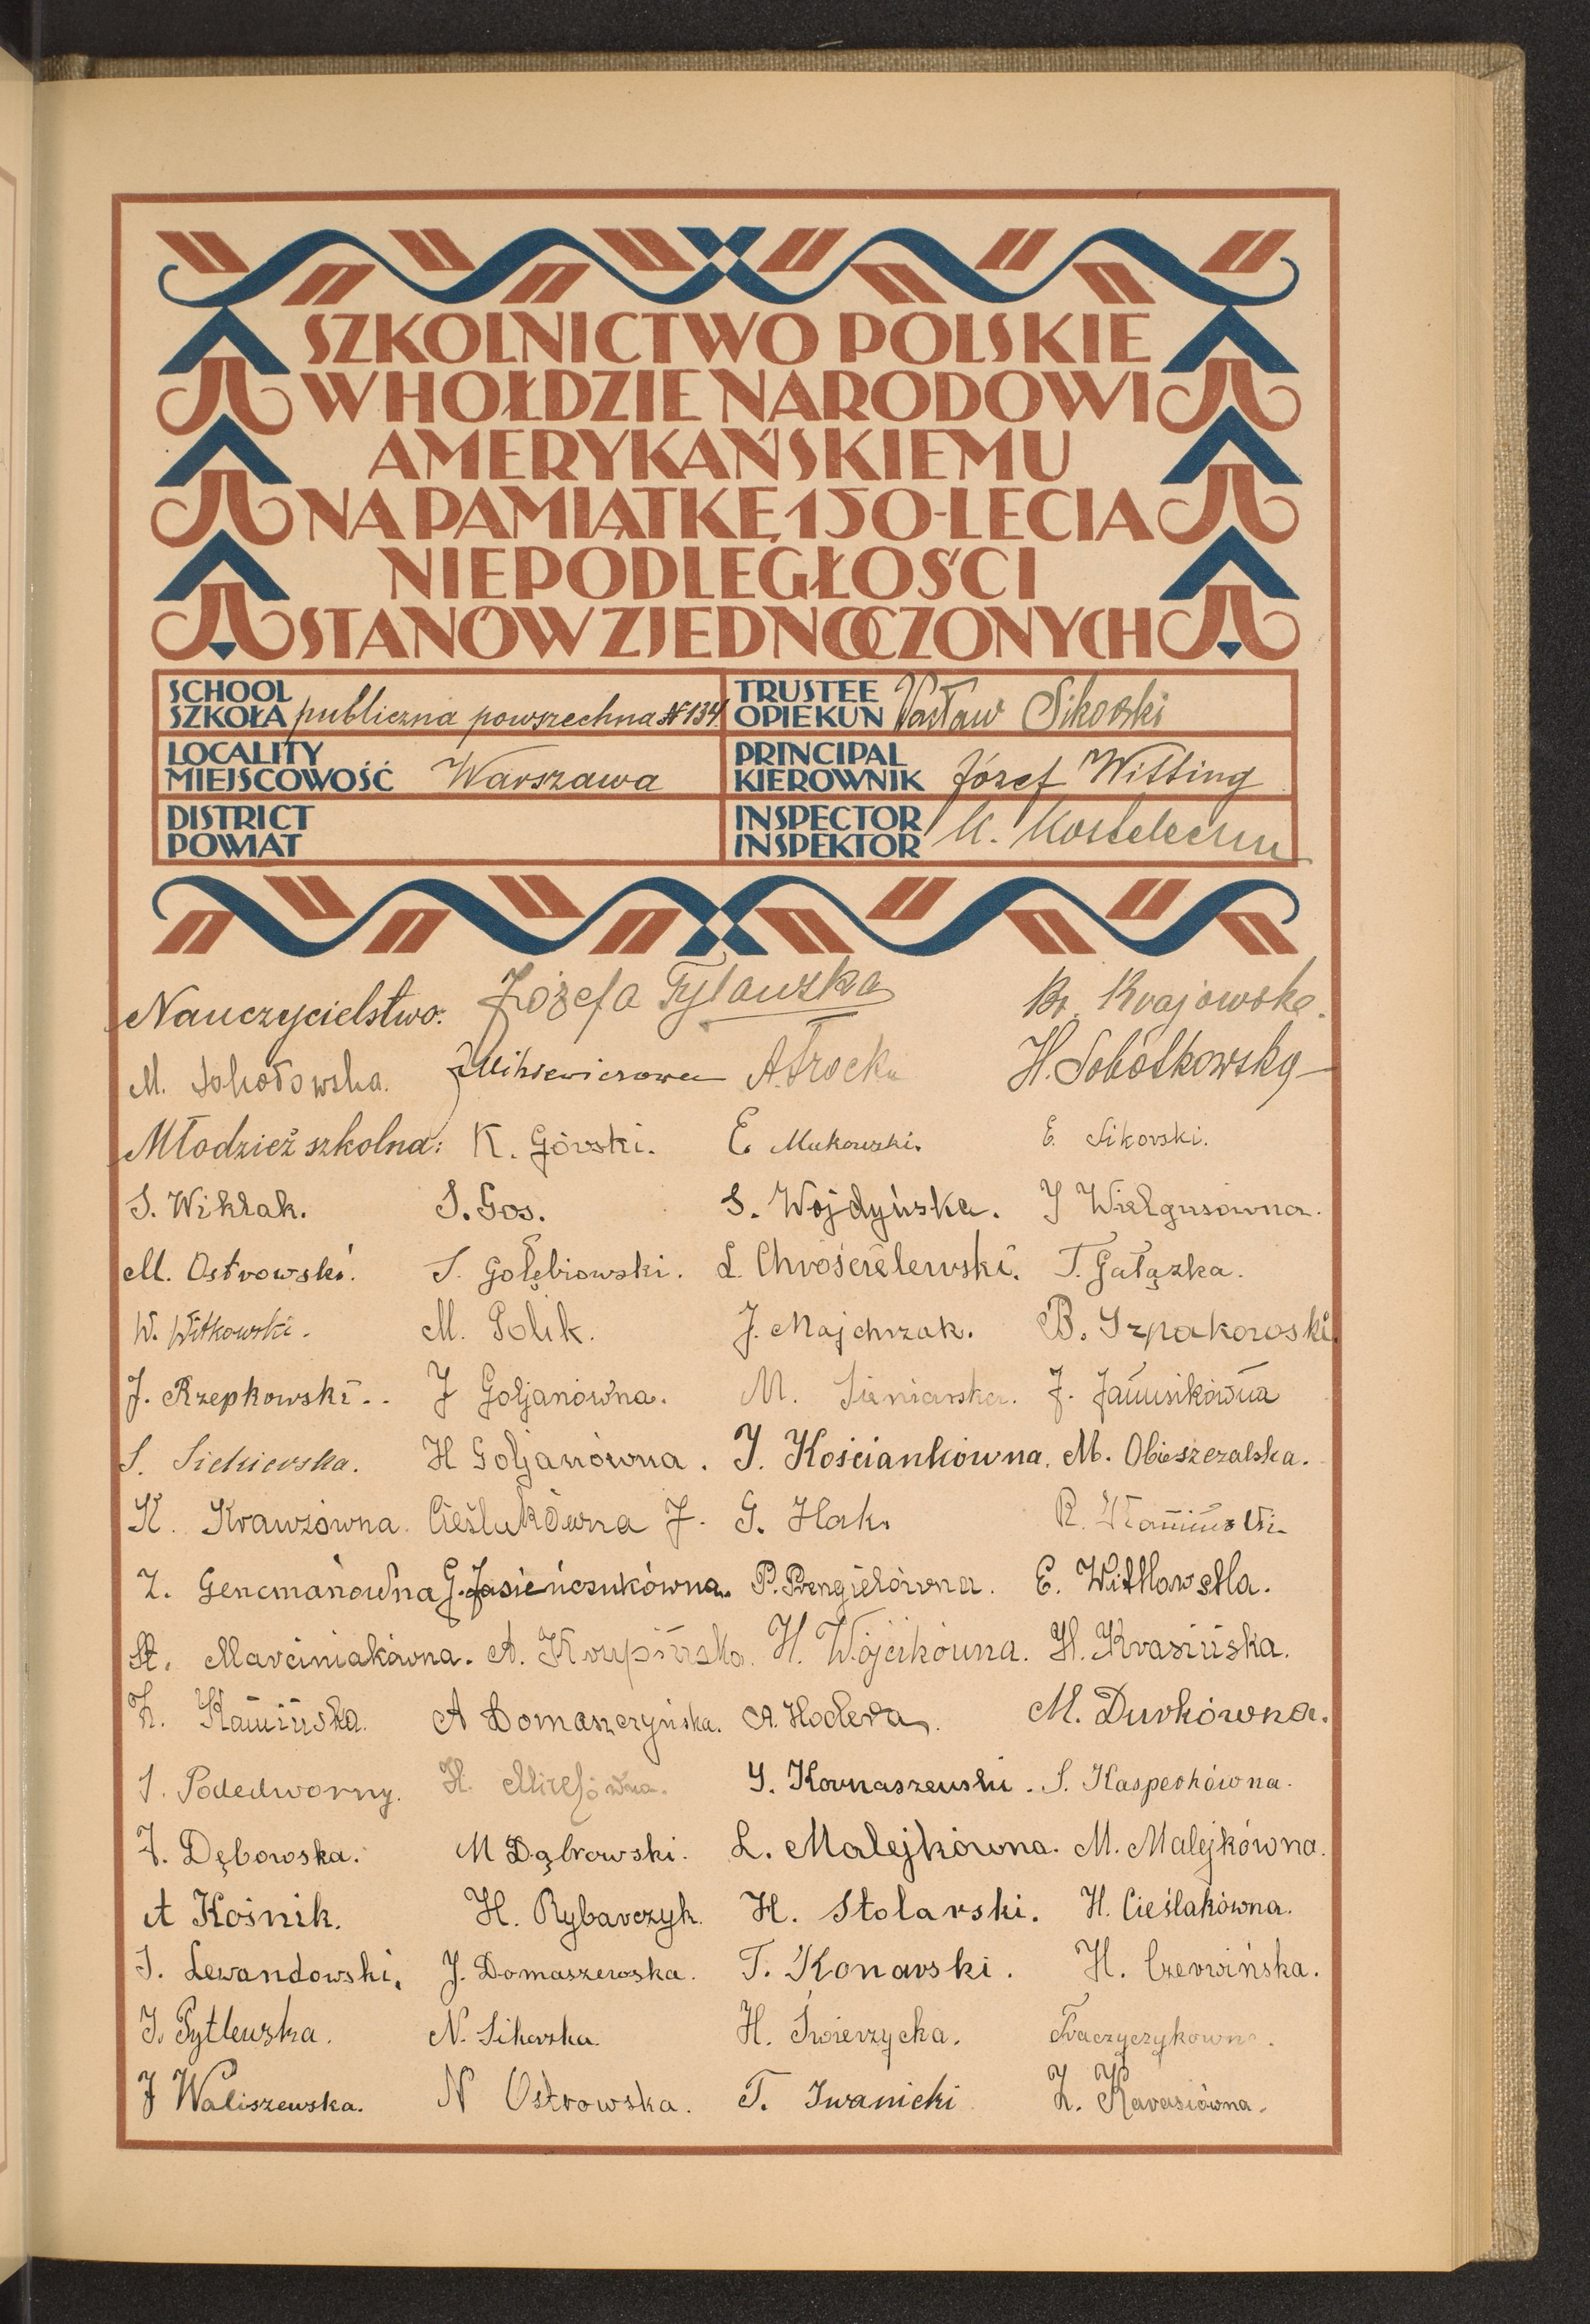 SZKOLNICTWO POLSKIE
W HOŁDZIE NARODOWI
AMERYKAŃSKIEMU
NA PAMIĄTKĘ 150-LECIA
NIEPODLEGŁOŚCI
STANÓW ZJEDNOCZONYCH
SCHOOL
SZKOŁA publiczna powszechna № 134.
TRUSTEE
OPIEKUN Wacław Sikorski
LOCALITY
MIEJSCOWOŚĆ Warszawa
PRINCIPAL
KIEROWNIK Józef Witting
DISTRICT
POWIAT
INSPECTOR
INSPEKTOR
Nauczycielstwo: Józefa Br. Krajowska.
M. Sokołowska. A. Trocka H. Sobótkowska
Młodzież szkolna: K. Górski. E. Makowski. E. Sikorski.
S. Wikłak. S. Gos. S. Wojdyńska. J Wielgusówna.
M. Ostrowski. S. Gołębiowski. L. Chróścielewski. T. Gałązka.
W. Witkowski. M. Polik. J. Majchrzak. B. Szpakowski.
J. Rzepkowski.. J Goljanówna. M. Sieniarska. J. Janusikówna
S. Siekierska. H Goljanówna. J. Kościankówna. M. Obieszczalska.
K. Krawzówna. Cieślukówna J. G. Hak. R. Kamiński.
Z. Gencmanówna G. Jasieńczukówna. P. Prengielówna. E. Witkowska.
St. Marciniakówna. A. Krupińska. H. Wójcikówna. H. Krasińska.
K. Kamińska. A Domaszczyńska. A. Hodera. M. Durkówna.
S. Podedworny. H. J. Kornaszewski. S. Kasperkówna.
J. Dębowska. M Dąbrowski. L. Malejkówna. M. Malejkówna.
A Kośnik. H. Rybarczyk. H. Stolarski. H. Cieślakówna.
S. Lewandowski. J. Domaszewska. T. Konarski. H. Czerwińska.
J. Pytlewska. N. Sikorska. H. Świerzycka. Traczyczykówna.
J Waliszewska. N Ostrowska. T. Iwanicki Z. Karasiówna.